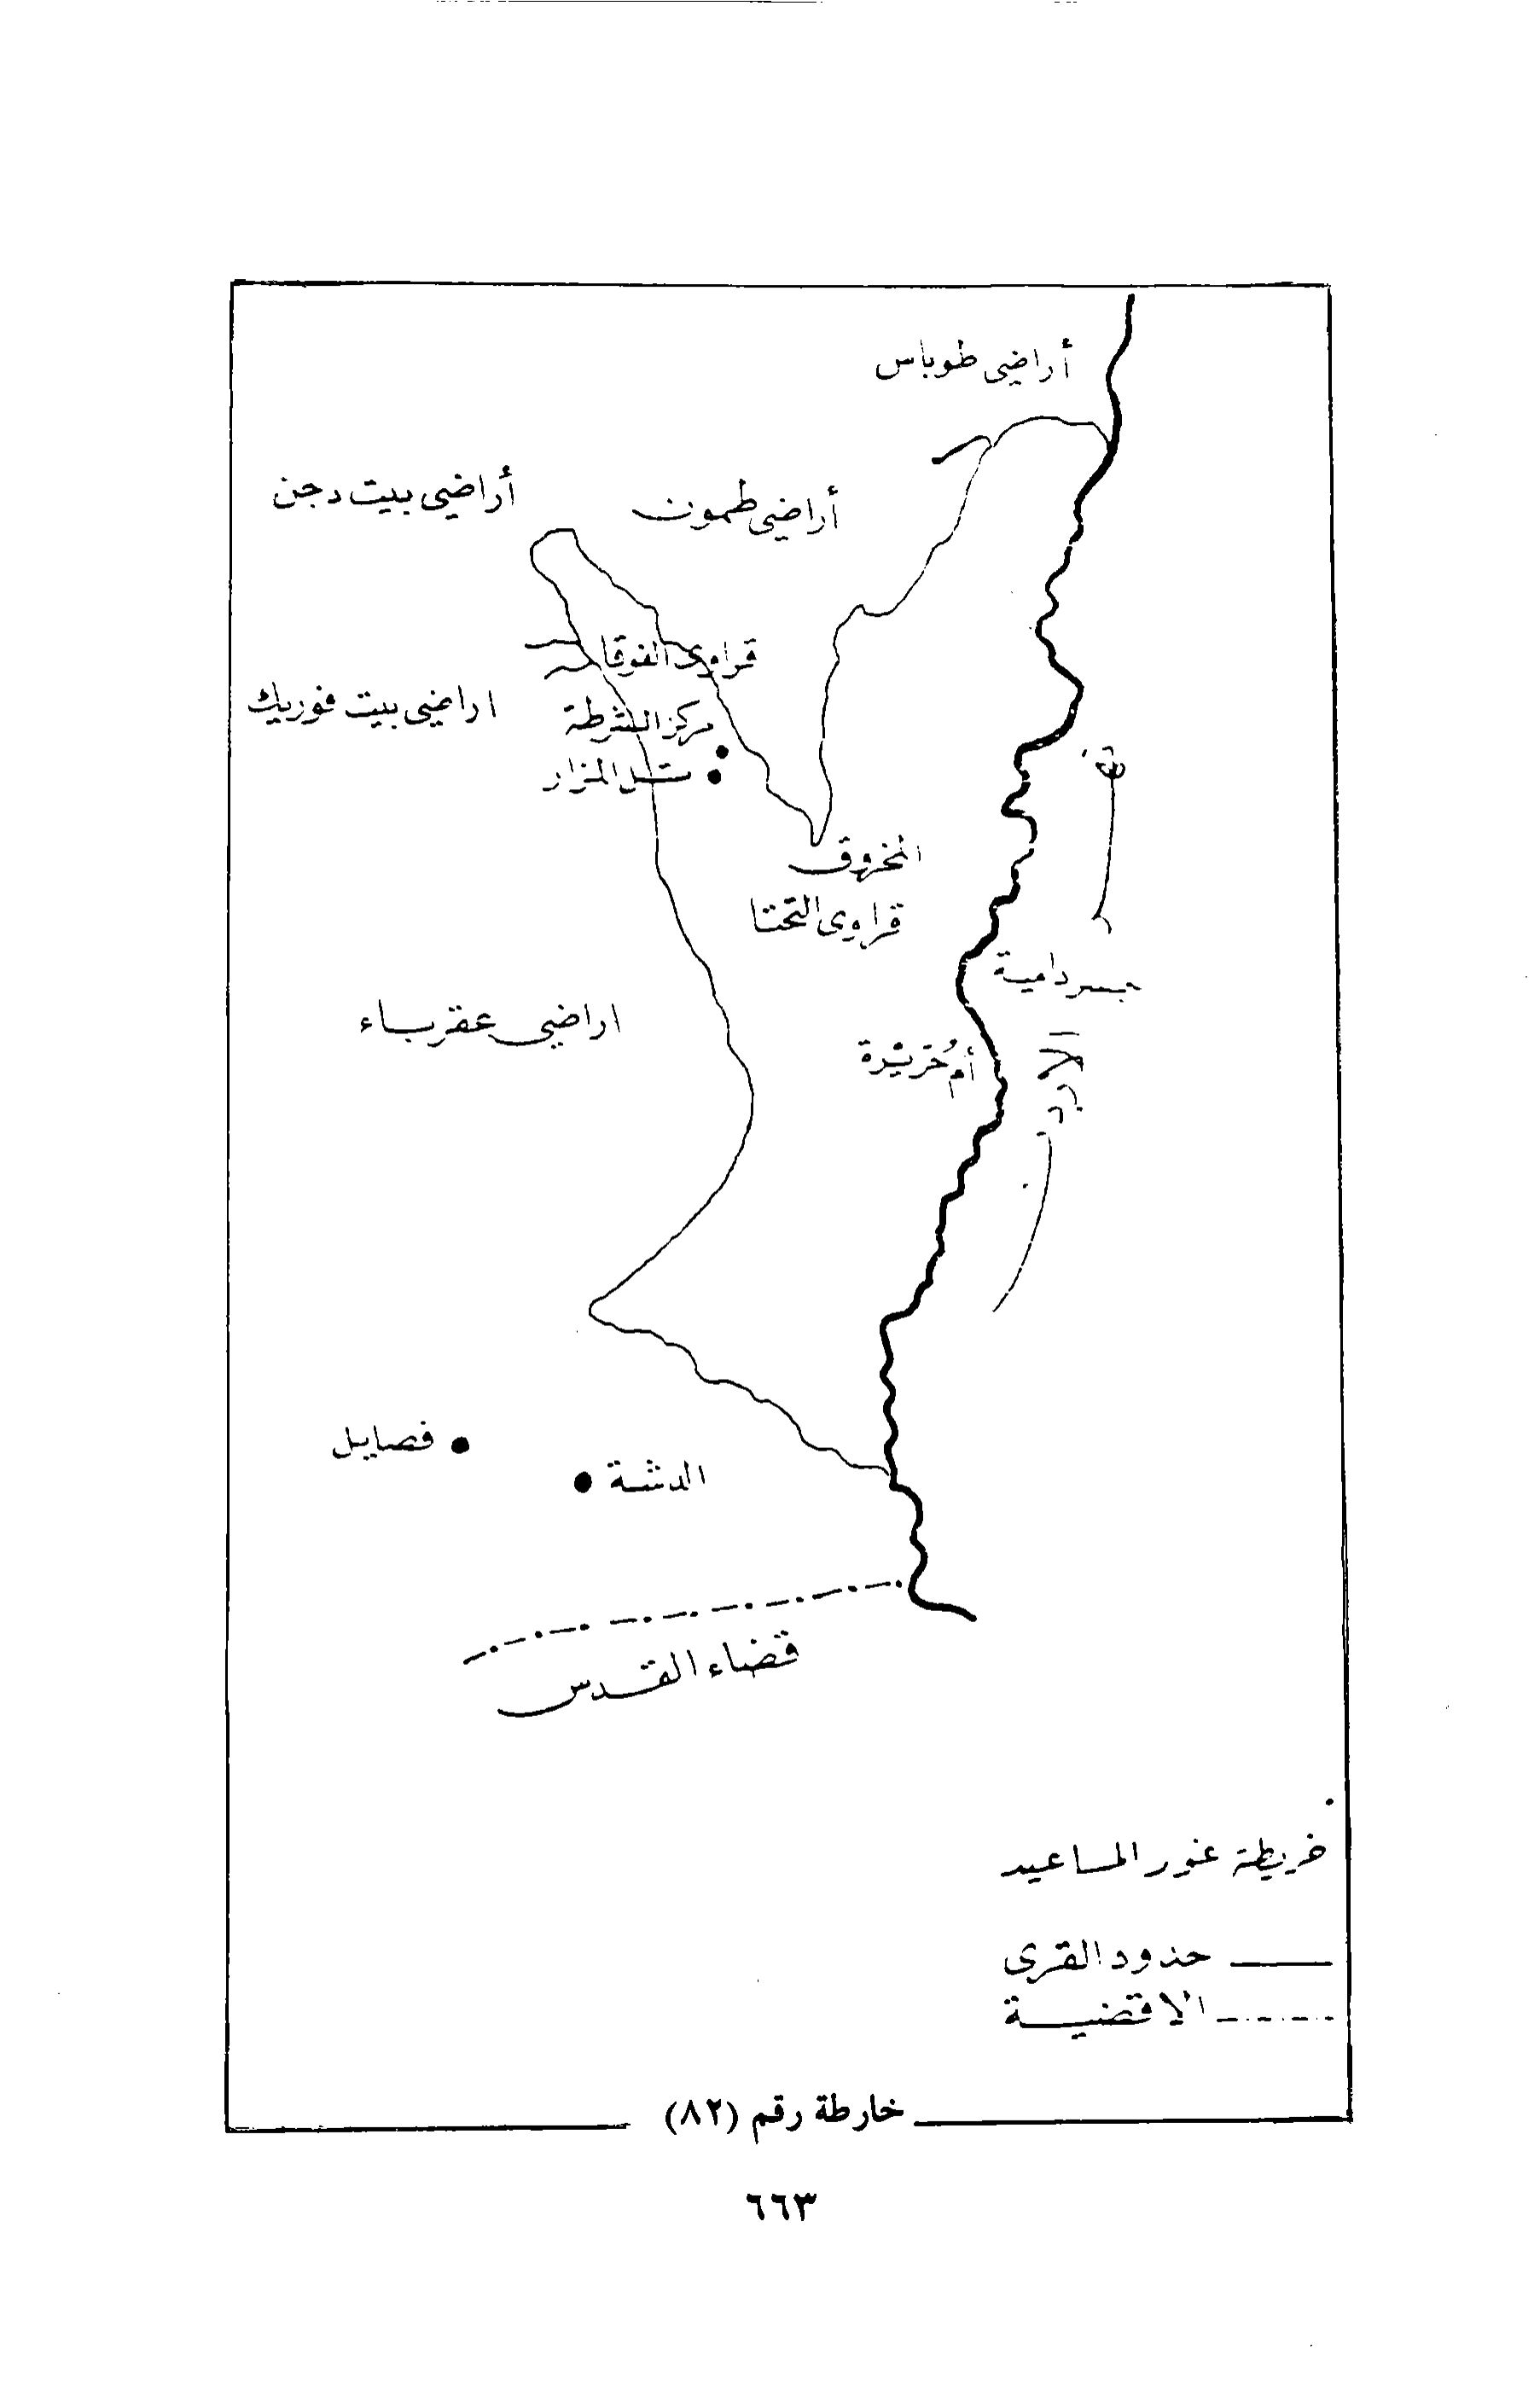 أراضي طوباس
أراضي بيت دجن
أراضي طمون
قراوى الفوقا
اراضي بيت فوريك
مركز الشرطة
تل المزار
المخروق
قراوى التحتا
جسر دامية
اراضي عقرباء
أم خريشرة
نهر
الأردن
فصايل
الدشة
قضاء القدس
خريطة غور المساعيد
حدود القرى
الاقضية
خارطة رقم (٨٢)
٦٦٣